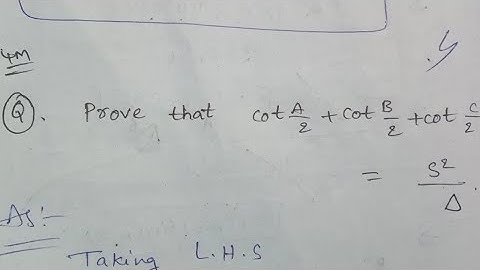 4M
Q. Prove that cot A/2 + cot B/2 + cot C/2
= S²/Δ.
AS:-
Taking L.H.S